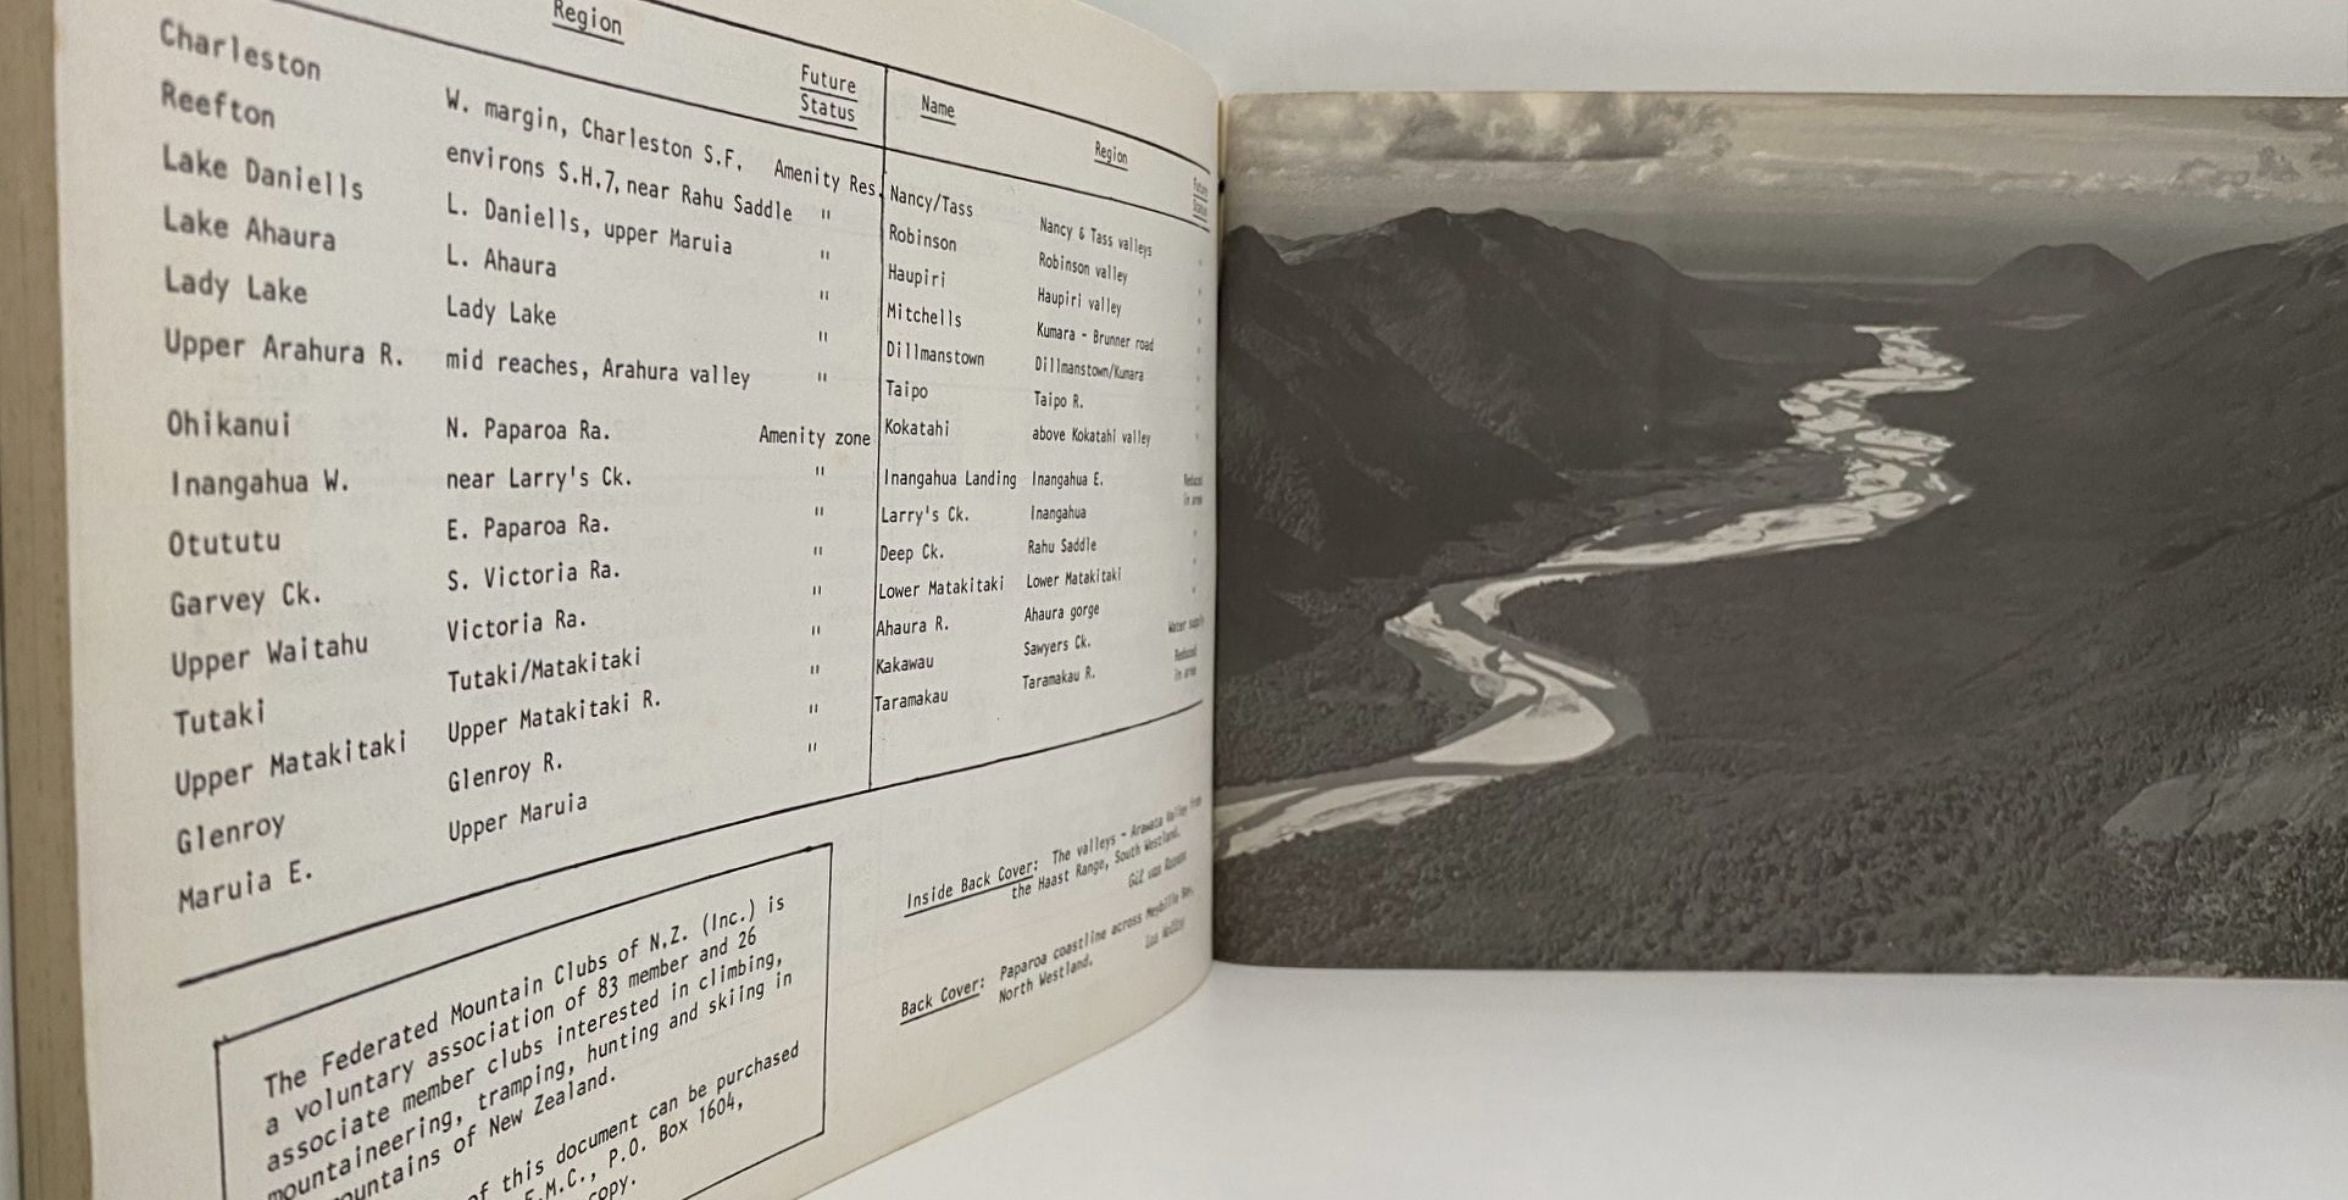 Region
Future
Status
Charleston W. margin, Charleston S.F. Amenity Res.
Reefton environs S.H.7, near Rahu Saddle "
Lake Daniells L. Daniells, upper Maruia "
Lake Ahaura L. Ahaura "
Lady Lake Lady Lake "
Upper Arahura R. mid reaches, Arahura valley "
Ohikanui N. Paparoa Ra. Amenity zone
Inangahua W. near Larry's Ck. "
Otututu E. Paparoa Ra. "
Garvey Ck. S. Victoria Ra. "
Upper Waitahu Victoria Ra. "
Tutaki Tutaki/Matakitaki "
Upper Matakitaki Upper Matakitaki R. "
Glenroy Glenroy R. "
Maruia E. Upper Maruia "
Name Region Future
Status
Nancy/Tass Nancy & Tass valleys "
Robinson Robinson valley "
Haupiri Haupiri valley "
Mitchells Kumara - Brunner road "
Dillmanstown Dillmanstown/Kumara "
Taipo Taipo R. "
Kokatahi above Kokatahi valley "
Inangahua Landing Inangahua E. Reduced
in area
Larry's Ck. Inangahua "
Deep Ck. Rahu Saddle "
Lower Matakitaki Lower Matakitaki "
Ahaura R. Ahaura gorge
Kakawau Sawyers Ck. Water supply
Taramakau Taramakau R. Reduced
in area
The Federated Mountain Clubs of N.Z. (Inc.) is
a voluntary association of 83 member and 26
associate member clubs interested in climbing,
mountaineering, tramping, hunting and skiing in
mountains of New Zealand.
of this document can be purchased
F.M.C., P.O. Box 1604,
copy.
Inside Back Cover: The valleys - Arawata Valley from
the Haast Range, South Westland.
Back Cover: Paparoa coastline across
North Westland.